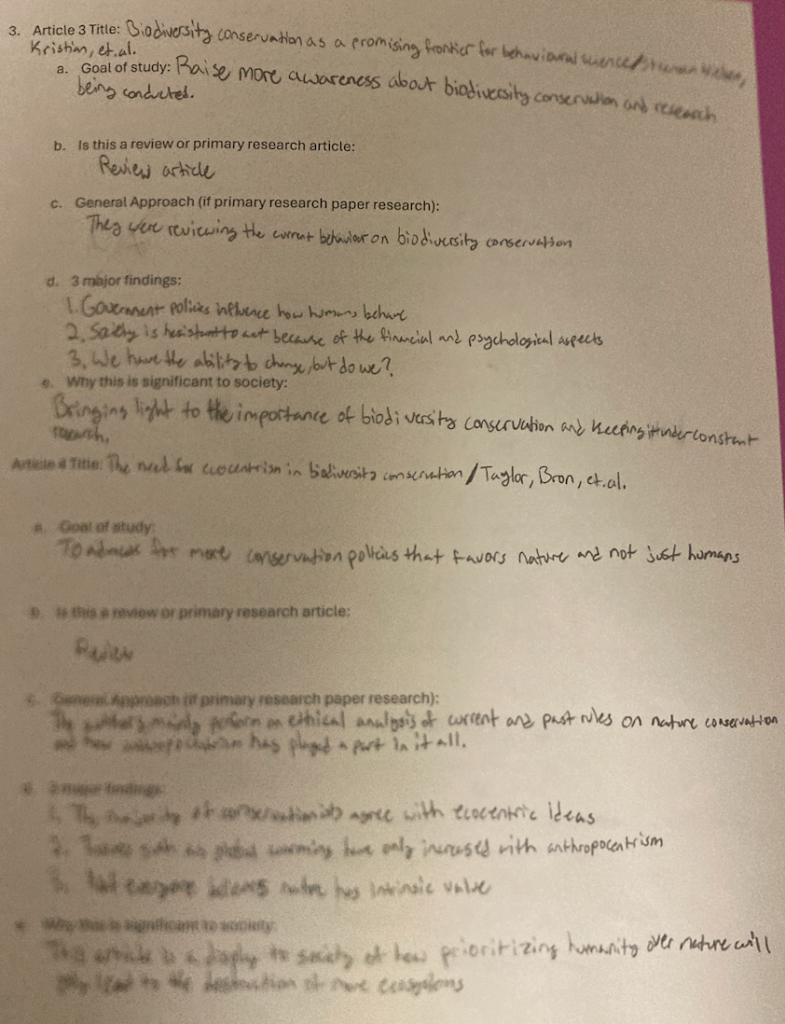 3. Article 3 Title: Biodiversity conservation as a promising frontier for behavioural science/
Kristian, et.al.
a. Goal of study: Raise more awareness about biodiversity conservation and research
being conducted.
b. Is this a review or primary research article:
Review article
c. General Approach (if primary research paper research):
They were reviewing the current behavior on biodiversity conservation
d. 3 major findings:
1. Government policies influence how humans behave
2. Society is hesistant to act because of the financial and psychological aspects
3. We have the ability to change, but do we?
e. Why this is significant to society:
Bringing light to the importance of biodiversity conservation and keeping it under constant
research.
Article 4 Title: The need for ecocentrism in biodiversity conservation / Taylor, Bron, et.al.
a. Goal of study:
To advocate for more conservation policies that favors nature and not just humans
b. Is this a review or primary research article:
Review
c. General Approach (if primary research paper research):
The authors mainly perform an ethical analysis of current and past rules on nature conservation
and how anthropocentrism has played a part in it all.
d. 3 major findings:
1. The majority of conservationists agree with ecocentric ideas
2. Issues such as global warming have only increased with anthropocentrism
3. Not everyone believes nature has intrinsic value
e. Why this is significant to society:
This article is a display to society of how prioritizing humanity over nature will
only lead to the destruction of more ecosystems